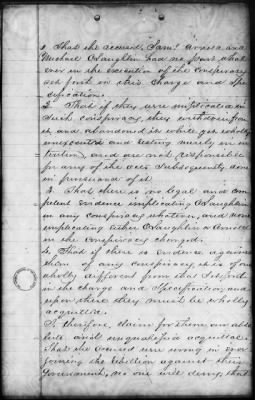 1. That the accused, Sam'l Arnold and
Michael O'Laughlin had no part what
ever in the execution of the conspiracy
set forth in this charge and spe
cification.
2. That if they were implicated in
such conspiracy, they withdrew from
it and abandoned it while yet wholly
unexecuted and resting merely in in
tention, and are not responsible
for any of the acts subsequently done
in pursuance of it.
3. That there is no legal and com
petent evidence implicating O'Laughlin
in any conspiracy whatever, and none
implicating either O'Laughlin or Arnold
in the conspiracy charged.
4. That if there is evidence against
them of any conspiracy, it is of one
wholly different from that set forth
in the charge and specification, and
upon these they must be wholly
acquitted.
I, therefore, claim for them an abso
lute and unqualified acquittal.
That the accused were wrong in ever
joining the rebellion against their
Government, no one will deny, that